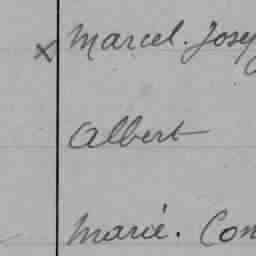 x Marcel. Josep
Albert
Marie. Con